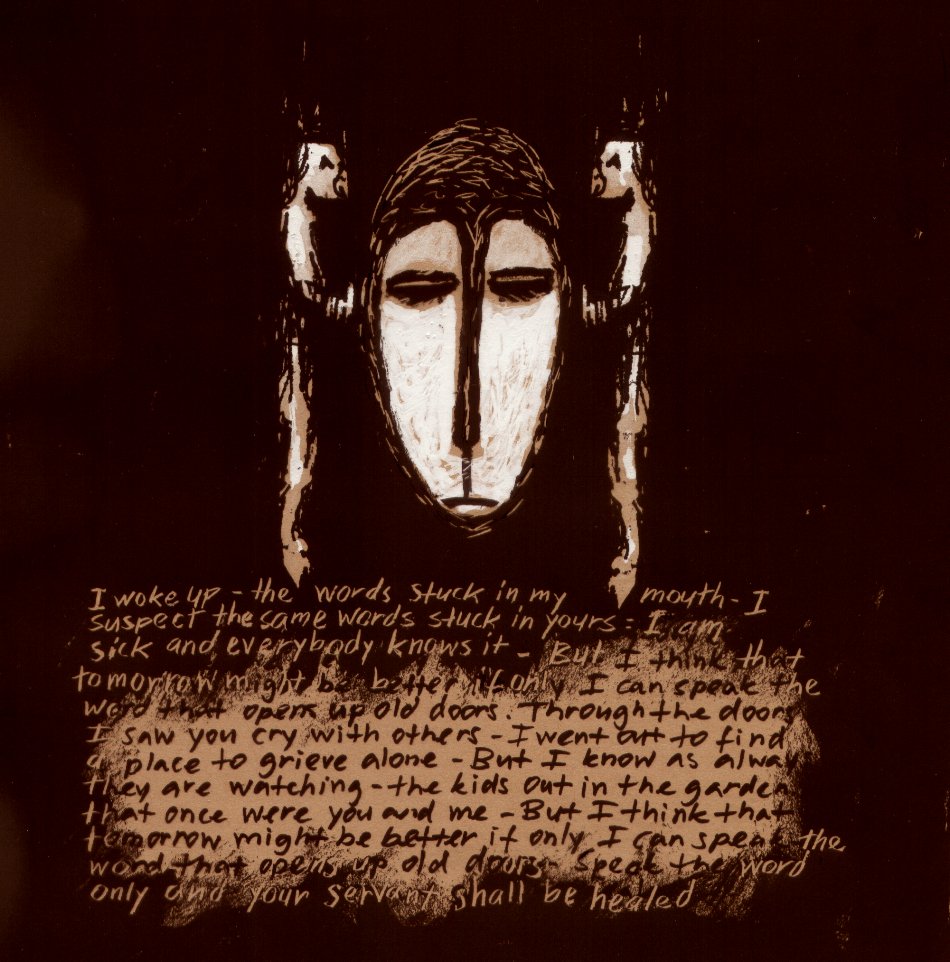 I woke up - the words stuck in my mouth - I
suspect the same words stuck in yours - I am
sick and everybody knows it - But I think that
tomorrow might be better if only I can speak the
word that opens up old doors. Through the doors
I saw you cry with others - I went out to find
a place to grieve alone - But I know as always
they are watching - the kids out in the garden
that once were you and me - But I think that
tomorrow might be better if only I can speak the
word that opens up old doors - Speak the word
only and your servant shall be healed